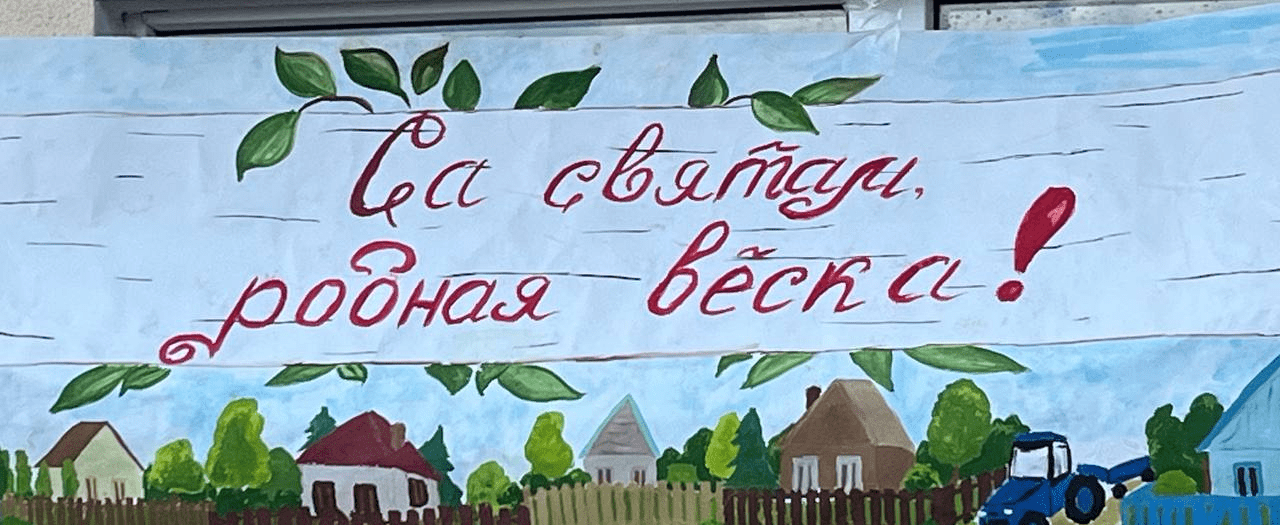 Са святам,
родная вёска!